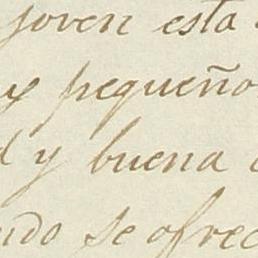 joven esta
y pequeño
y buena
ndo se ofrec